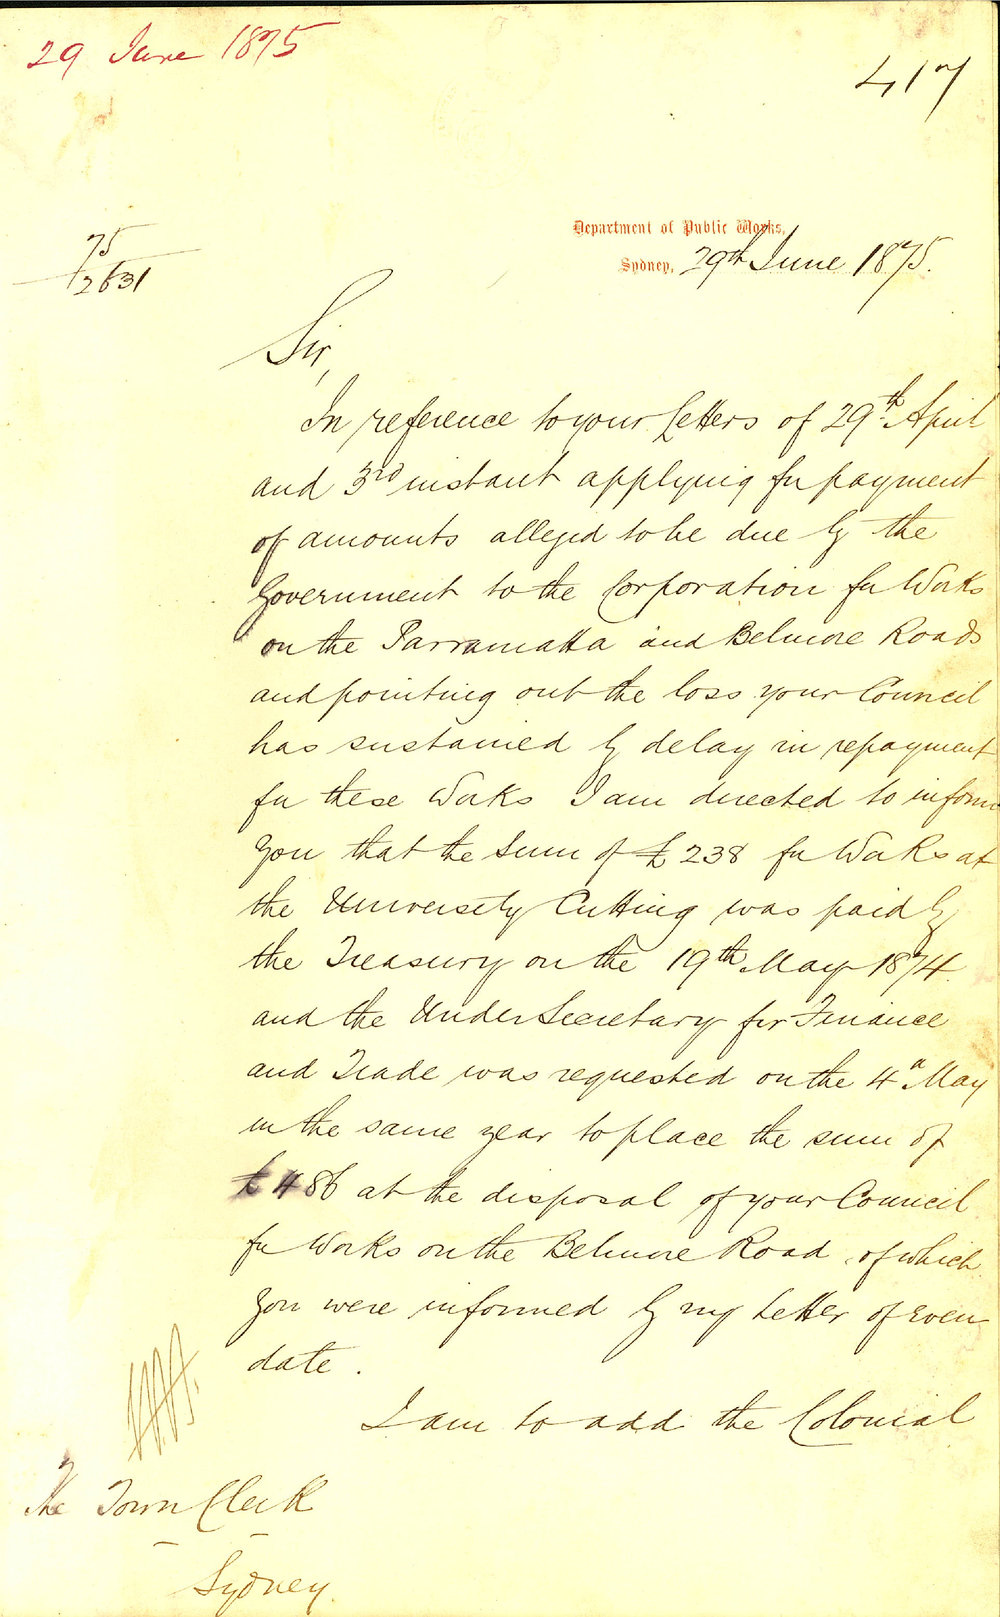 29 June 1875
417
Department of Public Works,
Sydney, 29th June 1875.
75
/2631
Sir,
In reference to your letters of 29th April
and 3rd instant applying for payment
of amounts alleged to be due by the
Government to the Corporation for Works
on the Parramatta and Belmore Roads
and pointing out the loss your Council
has sustained by delay in repayment
for these Works I am directed to inform
you that the sum of £238 for Works at
the University Cutting was paid by
the Treasury on the 19th May 1874
and the Under Secretary for Finance
and Trade was requested on the 4th May
in the same year to place the sum of
£486 at the disposal of your Council
for Works on the Belmore Road, of which
you were informed by my letter of even
date.
I am to add the Colonial
The Town Clerk
Sydney.